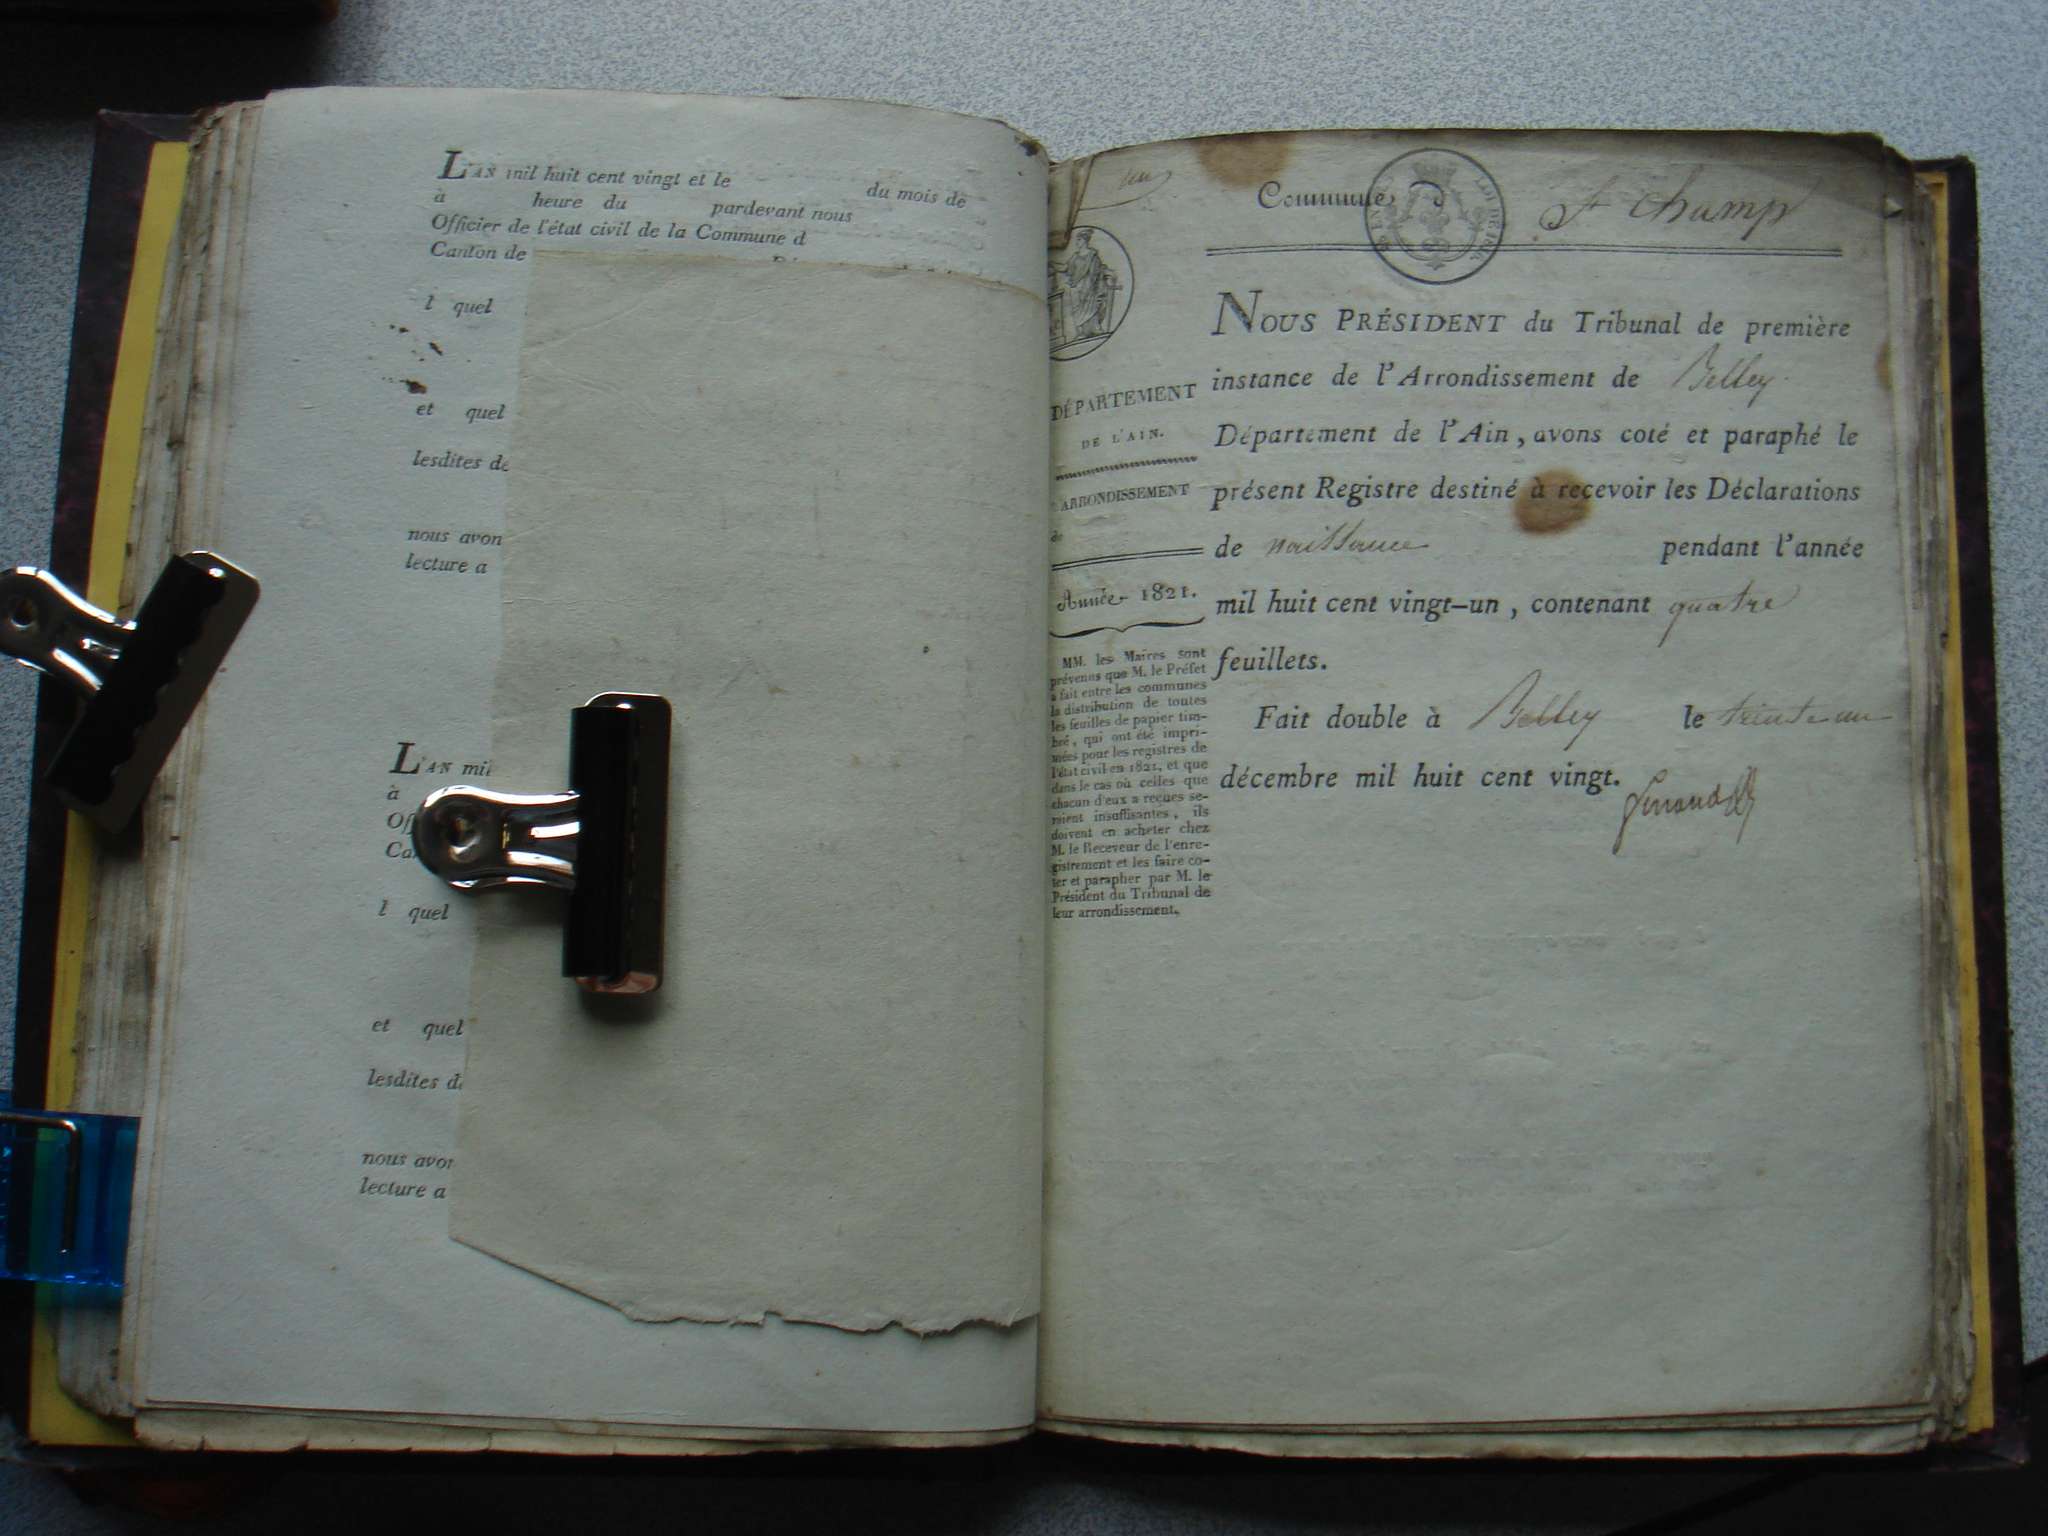 L'AN mil huit cent vingt et le du mois de
à heure du pardevant nous
Officier de l'état civil de la Commune d
Canton de
l quel
et quel
lesdites de
nous avon
lecture a
L'AN mil
à
Off
Ca
l quel
et quel
lesdites de
nous avon
lecture a
un
Commune St champ
NOUS PRÉSIDENT du Tribunal de première
instance de l'Arrondissement de Belley
Département de l'Ain, avons coté et paraphé le
présent Registre destiné à recevoir les Déclarations
de naissance pendant l'année
mil huit cent vingt-un, contenant quatre
feuillets.
Fait double à Belley le trente un
décembre mil huit cent vingt.
DÉPARTEMENT
DE L'AIN.
ARRONDISSEMENT
de
Année 1821.
MM. les Maires sont
prévenus que M. le Préfet
a fait entre les communes
la distribution de toutes
les feuilles de papier tim-
bré, qui ont été impri-
mées pour les registres de
l'état civil en 1821, et que
dans le cas où celles que
chacun d'eux a reçues se-
raient insuffisantes, ils
doivent en acheter chez
M. le Receveur de l'enre-
gistrement et les faire co-
ter et parapher par M. le
Président du Tribunal de
leur arrondissement.